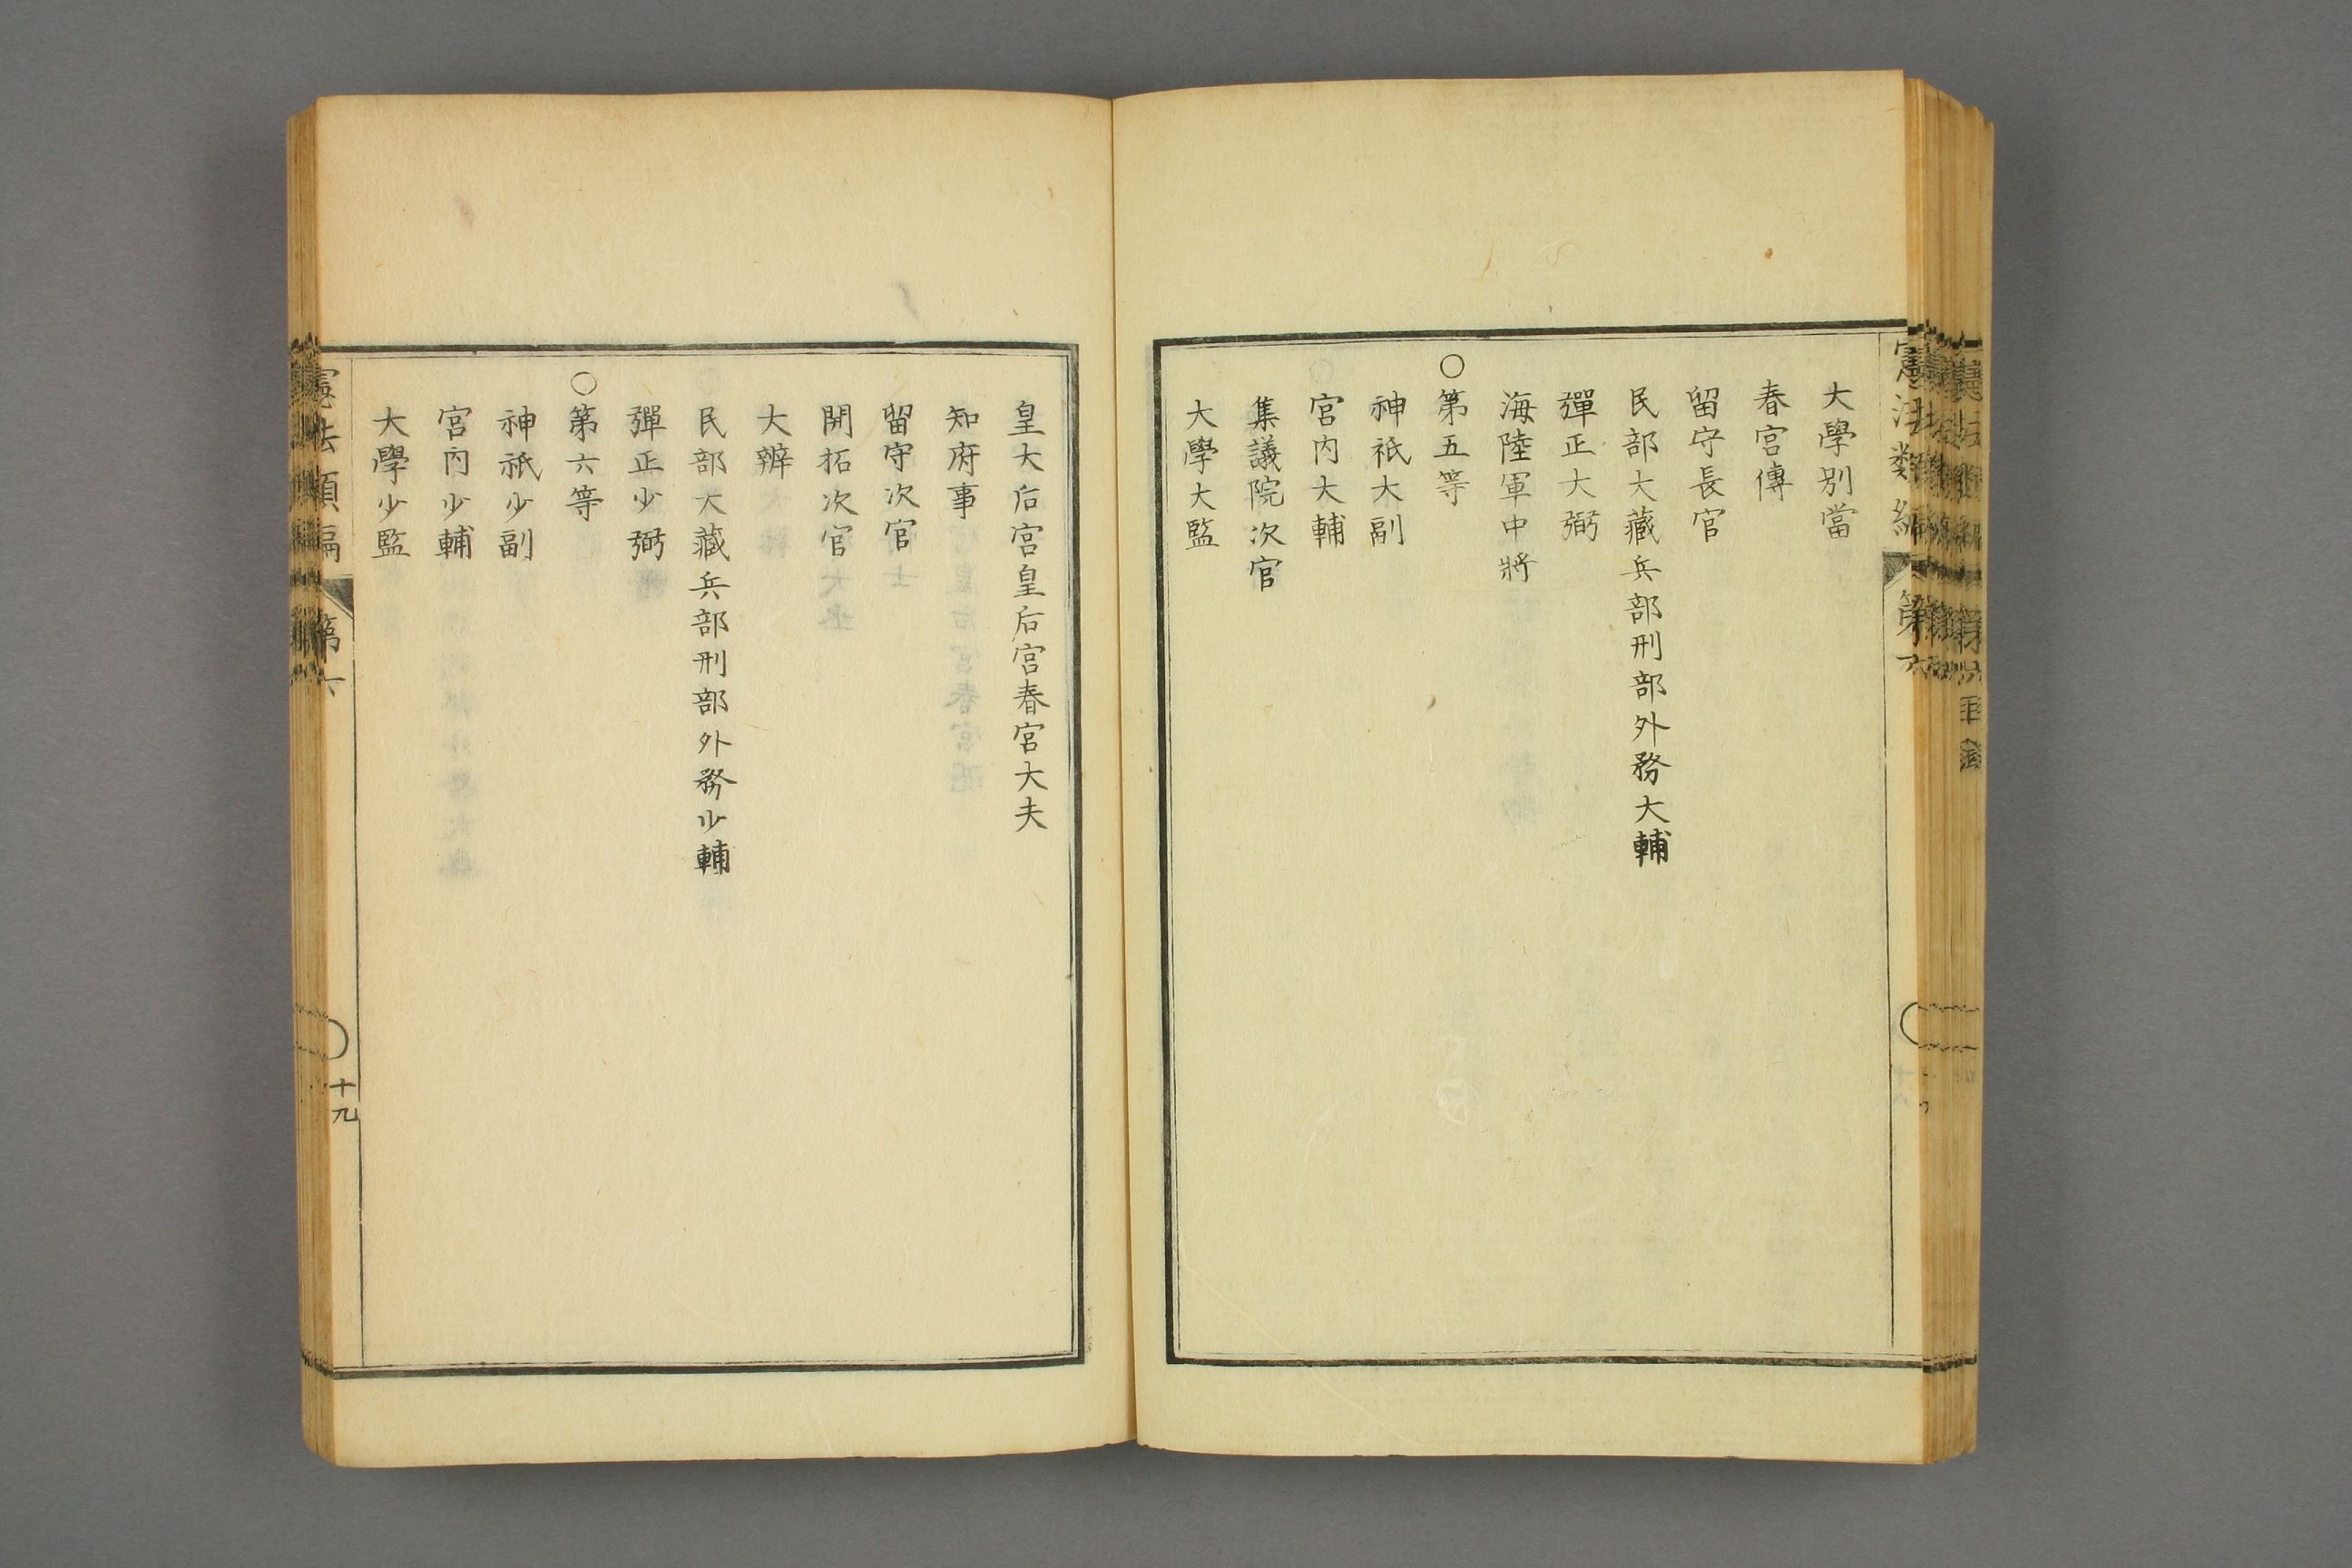 憲法類編
第六
大學別當
春宮傳
留守長官
民部大藏兵部刑部外務大輔
彈正大弼
海陸軍中將
○第五等
神祇大副
宮内大輔
集議院次官
大學大監
皇大后宮皇后宮春宮大夫
知府事
留守次官
開拓次官
大辨
民部大藏兵部刑部外務少輔
彈正少弼
○第六等
神祇少副
宮内少輔
大學少監
憲法類編
第六
十九